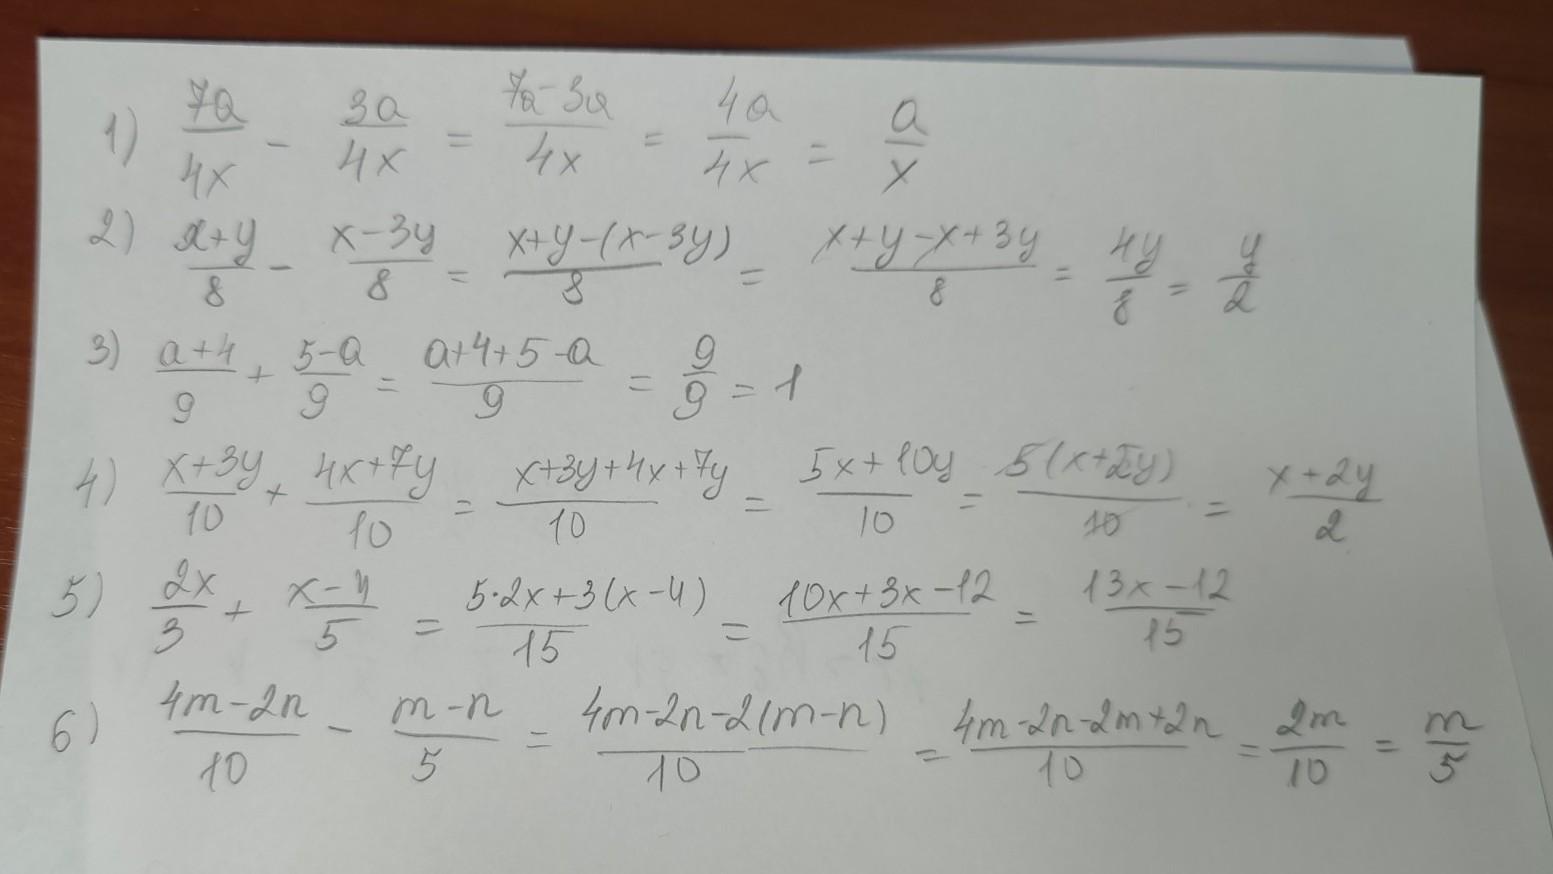 1) 7a/4x - 3a/4x = 7a-3a/4x = 4a/4x = a/x
2) x+y/8 - x-3y/8 = x+y-(x-3y)/8 = x+y-x+3y/8 = 4y/8 = y/2
3) a+4/9 + 5-a/9 = a+4+5-a/9 = 9/9 = 1
4) x+3y/10 + 4x+7y/10 = x+3y+4x+7y/10 = 5x+10y/10 = 5(x+2y)/10 = x+2y/2
5) 2x/3 + x-4/5 = 5·2x+3(x-4)/15 = 10x+3x-12/15 = 13x-12/15
6) 4m-2n/10 - m-n/5 = 4m-2n-2(m-n)/10 = 4m-2n-2m+2n/10 = 2m/10 = m/5